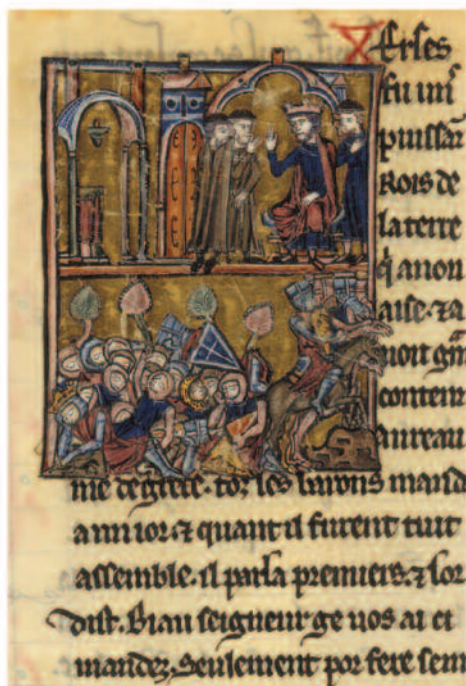 Xerses
fu un̄
puissāt
Rois de
la terre
q̄ anon
aise. ⁊ a
uoit gñt
contenr
au reau
me degrece. toz les barons manda
a un ior. ⁊ quant il furent tuit
assemble. il parla premiers. ⁊ lor
dist. Biau seigneur ge uos ai ci
mandez. seulement por fere sem